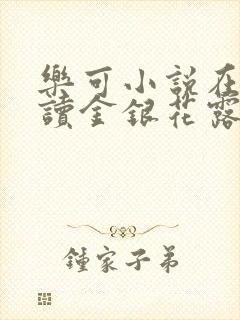 樂可小說在
讀金銀花露
鍾家子弟